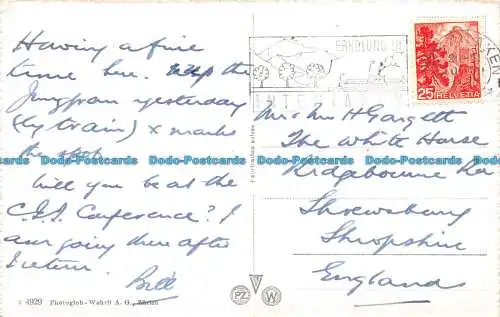 Having a fine
time here. Up the
Jungfrau yesterday
(by train) x marks
the spot.
Will you be at the
C.E.S. Conference? I
am going there after
I return.
Bill
4929 Photoglob-Wehrli A. G., Zürich
ERHOLUNG IN
INTERLAKEN
25
HELVETIA
Mr & Mrs H Gargett
The White Horse
Ridgebourne Rd
Shrewsbury
Shropshire
England
PZ
W
Dodo-Postcards Dodo-Postcards Dodo-Postcards